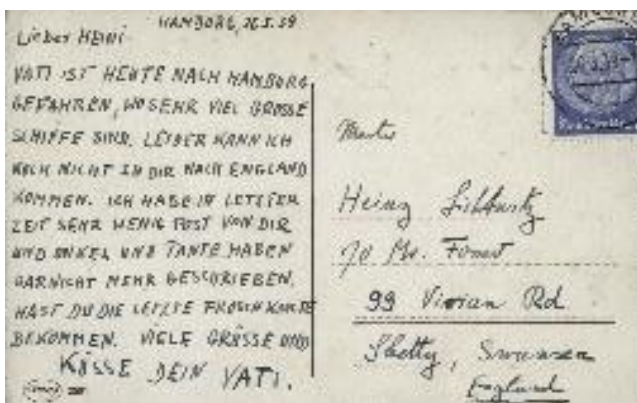 HAMBURG, 26.5.39
Lieber HEINI
VATI IST HEUTE NACH HAMBURG
GEFAHREN, WO SEHR VIEL GROSSE
SCHIFFE SIND. LEIDER KANN ICH
NOCH NICHT ZU DIR NACH ENGLAND
KOMMEN. ICH HABE IN LETZTER
ZEIT SEHR WENIG POST VON DIR
UND ONKEL UND TANTE HABEN
GARNICHT MEHR GESCHRIEBEN.
HAST DU DIE LETZTE KARTE
BEKOMMEN. VIELE GRÜSSE UND
KÜSSE DEIN VATI.
Master
Heinz
70 Mr.
99 Vivian Rd
Sketty, Swansea
England